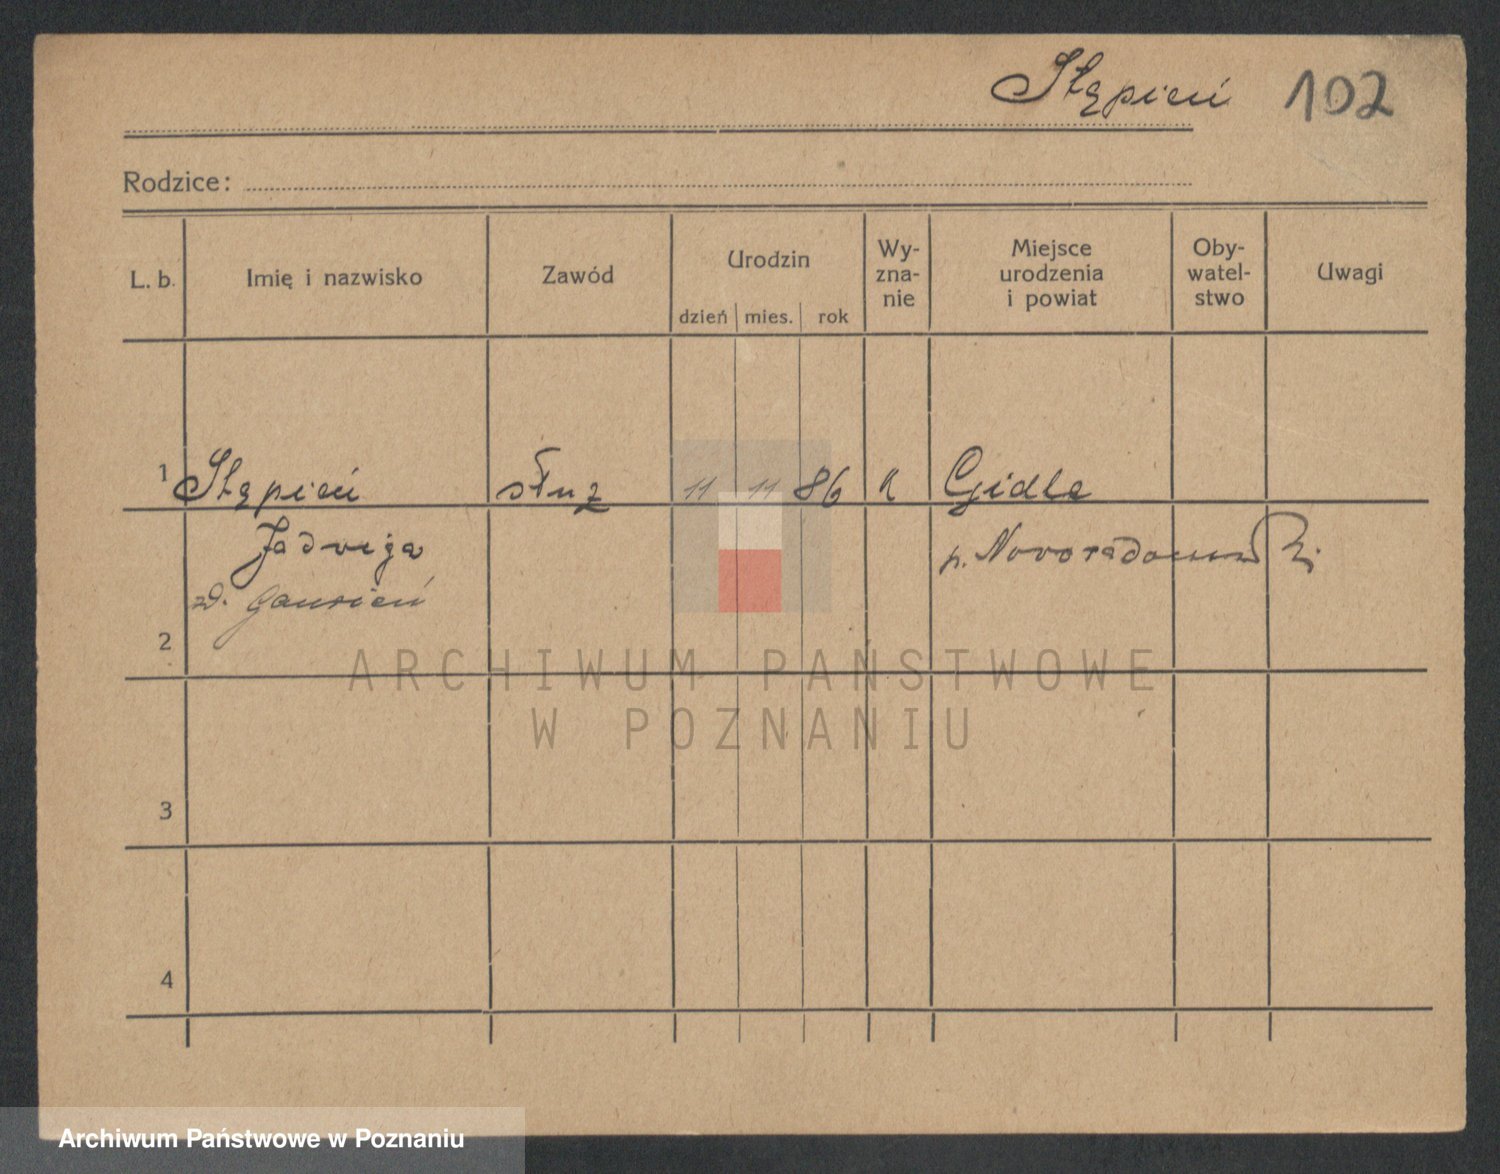 Stępień 102
Rodzice:
L. b. Imię i nazwisko Zawód Urodzin dzień mies. rok Wy-zna-nie Miejsce urodzenia i powiat Oby-watel-stwo Uwagi
1 Stępień służ 11 11 86 k Gidle
Jadwiga p.
zd.
2
ARCHIWUM PAŃSTWOWE
W POZNANIU
3
4
Archiwum Państwowe w Poznaniu